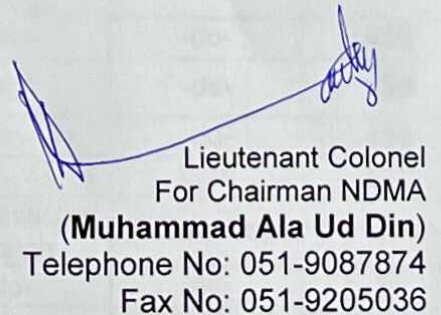 Lieutenant Colonel
For Chairman NDMA
(Muhammad Ala Ud Din)
Telephone No: 051-9087874
Fax No: 051-9205036